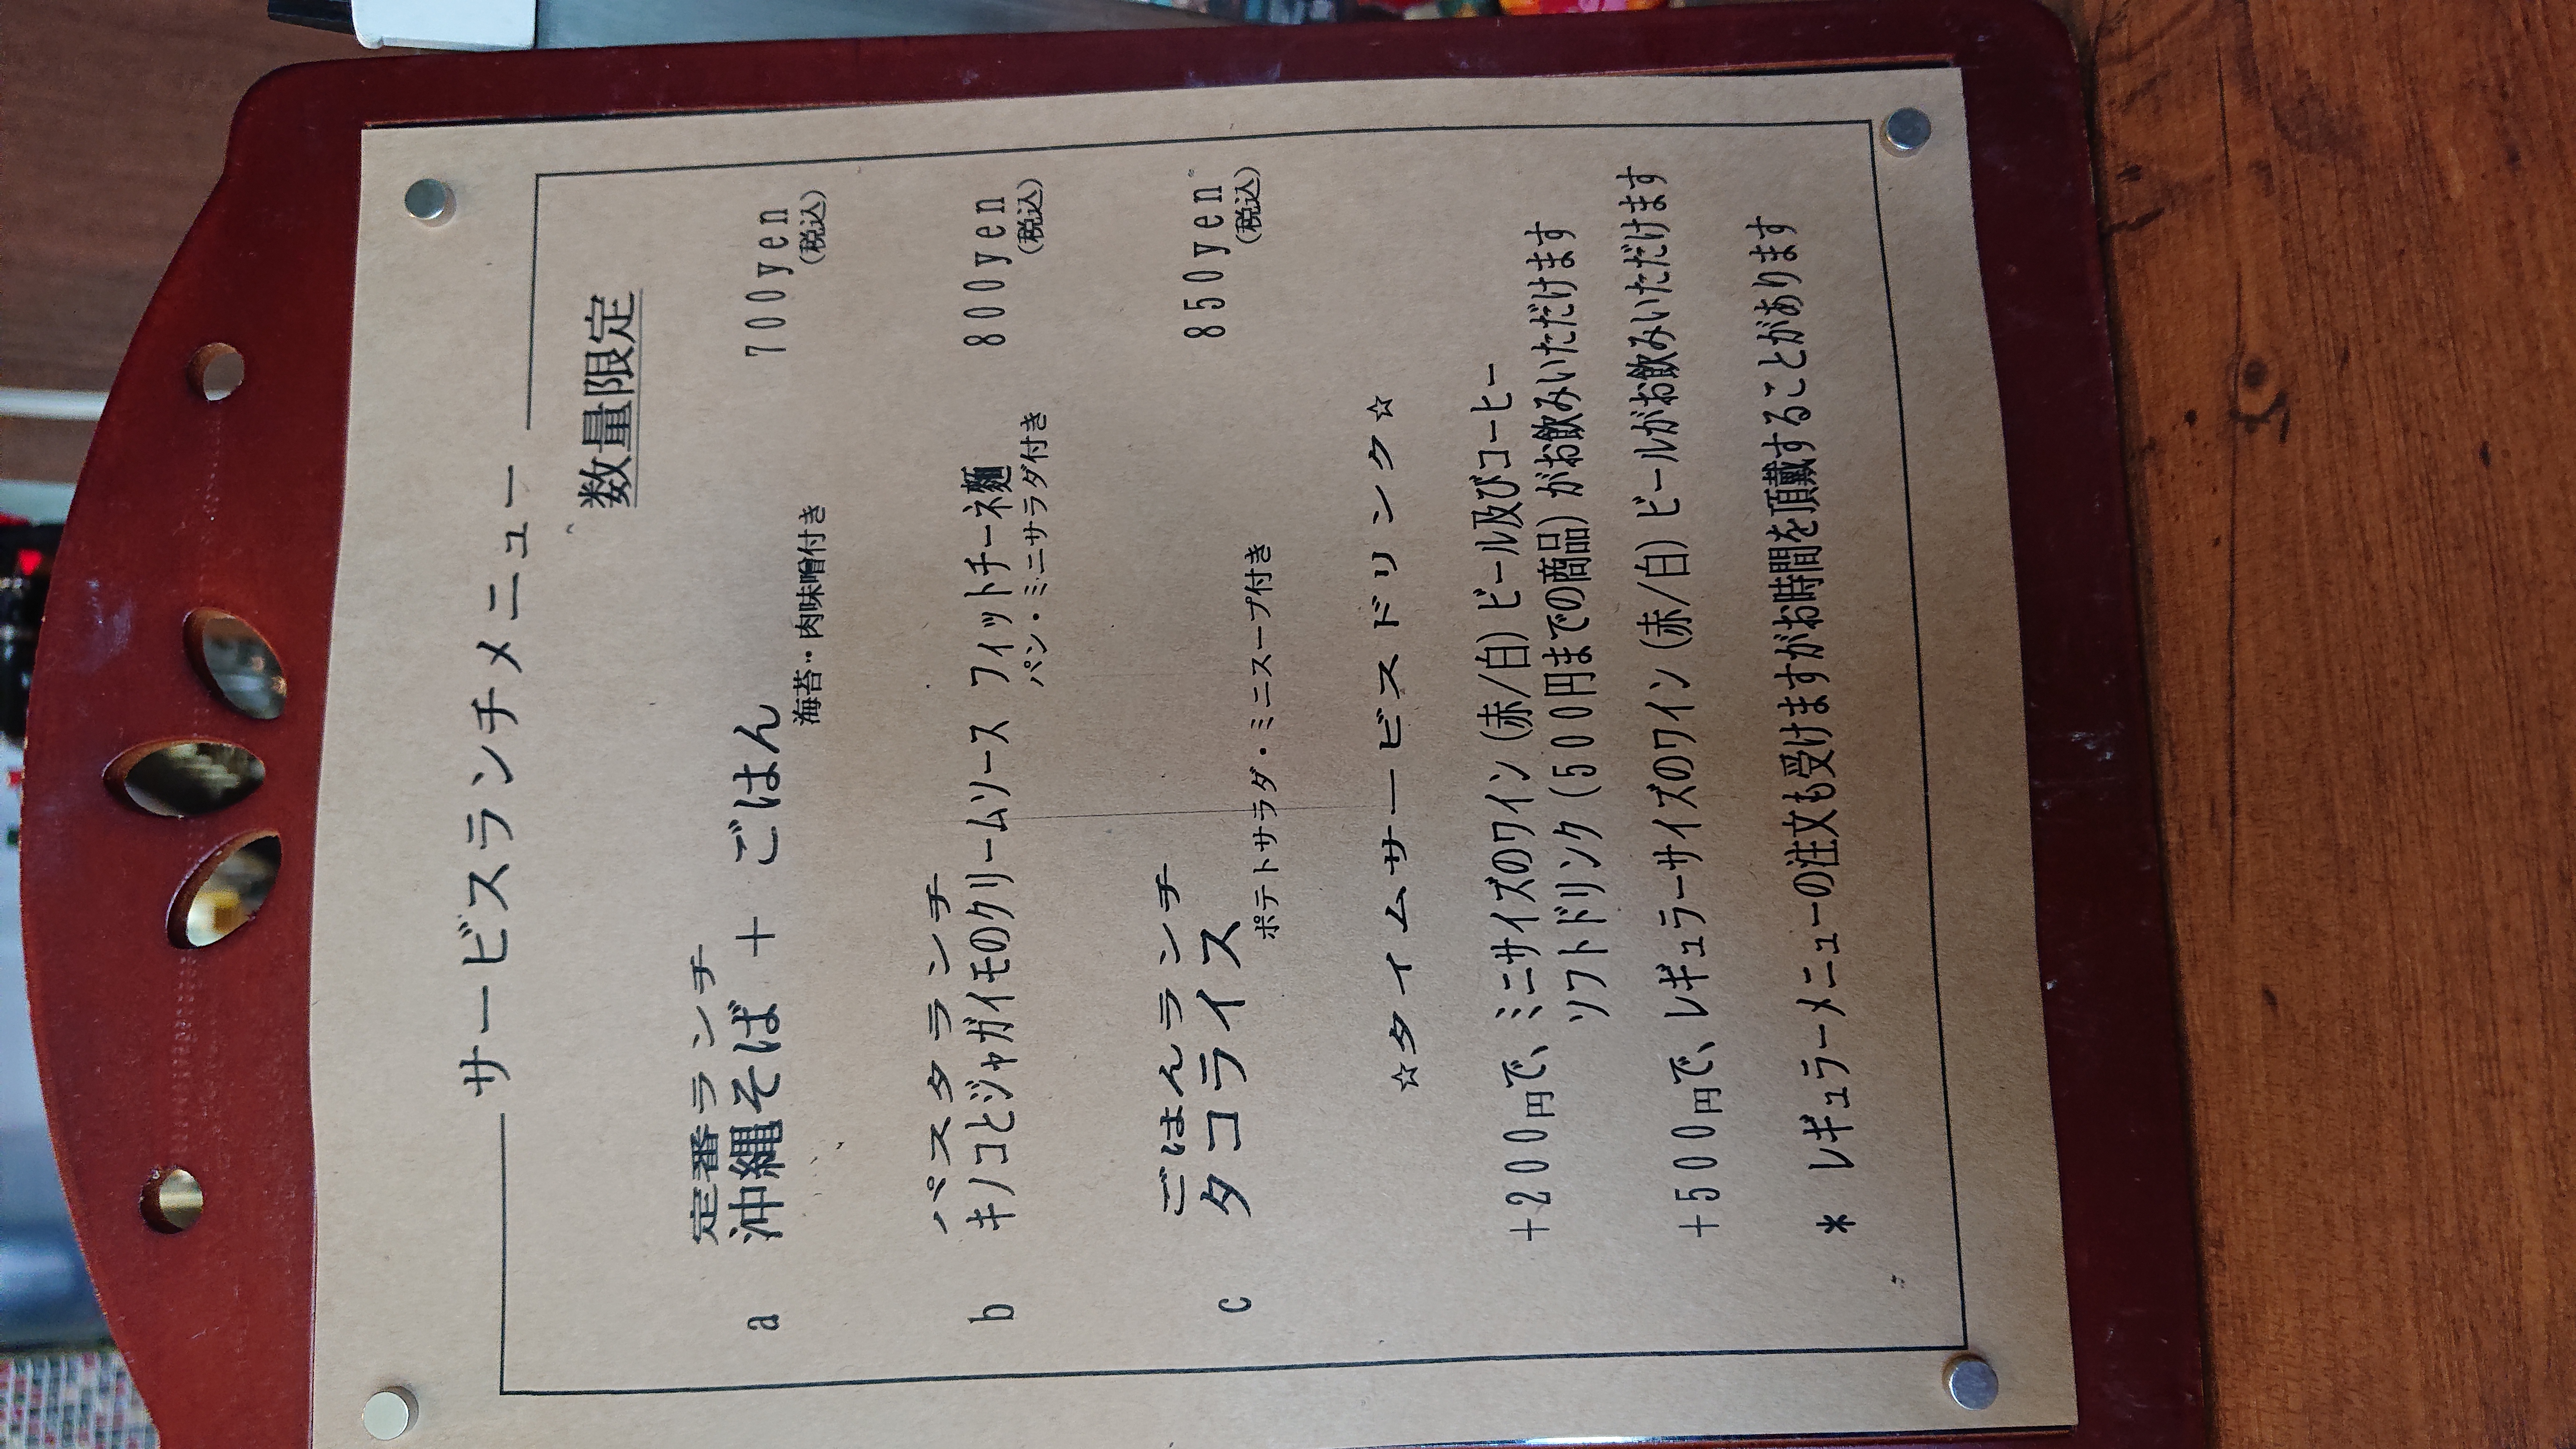 サービスランチメニュー
数量限定
定番ランチ
a 沖縄そば + ごはん 700yen
海苔・肉味噌付き (税込)
パスタランチ
b キノコとジャガイモのクリームソース フィットチーネ麺 800yen
パン・ミニサラダ付き (税込)
ごはんランチ
c タコライス 850yen
ポテトサラダ・ミニスープ付き (税込)
☆タイムサービスドリンク☆
+200円で、ミニサイズのワイン(赤/白)ビール及びコーヒー
ソフトドリンク(500円までの商品)がお飲みいただけます
+500円で、レギュラーサイズのワイン(赤/白)ビールがお飲みいただけます
* レギュラーメニューの注文も受けますがお時間を頂戴することがあります